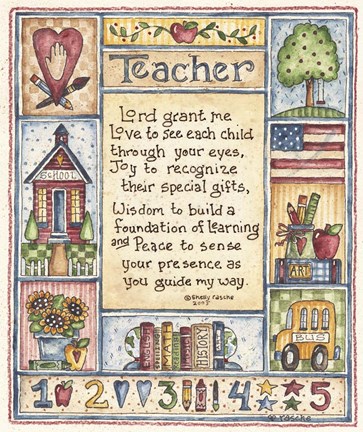 Teacher
Lord grant me
Love to see each child
through your eyes,
Joy to recognize
their special gifts,
Wisdom to build a
foundation of learning
and Peace to sense
your presence as
you guide my way.
© Shelly Rasche
2005
SCHOOL
ART
ENGLISH
HISTORY
BUS
1 2 3 4 5
© Rasche